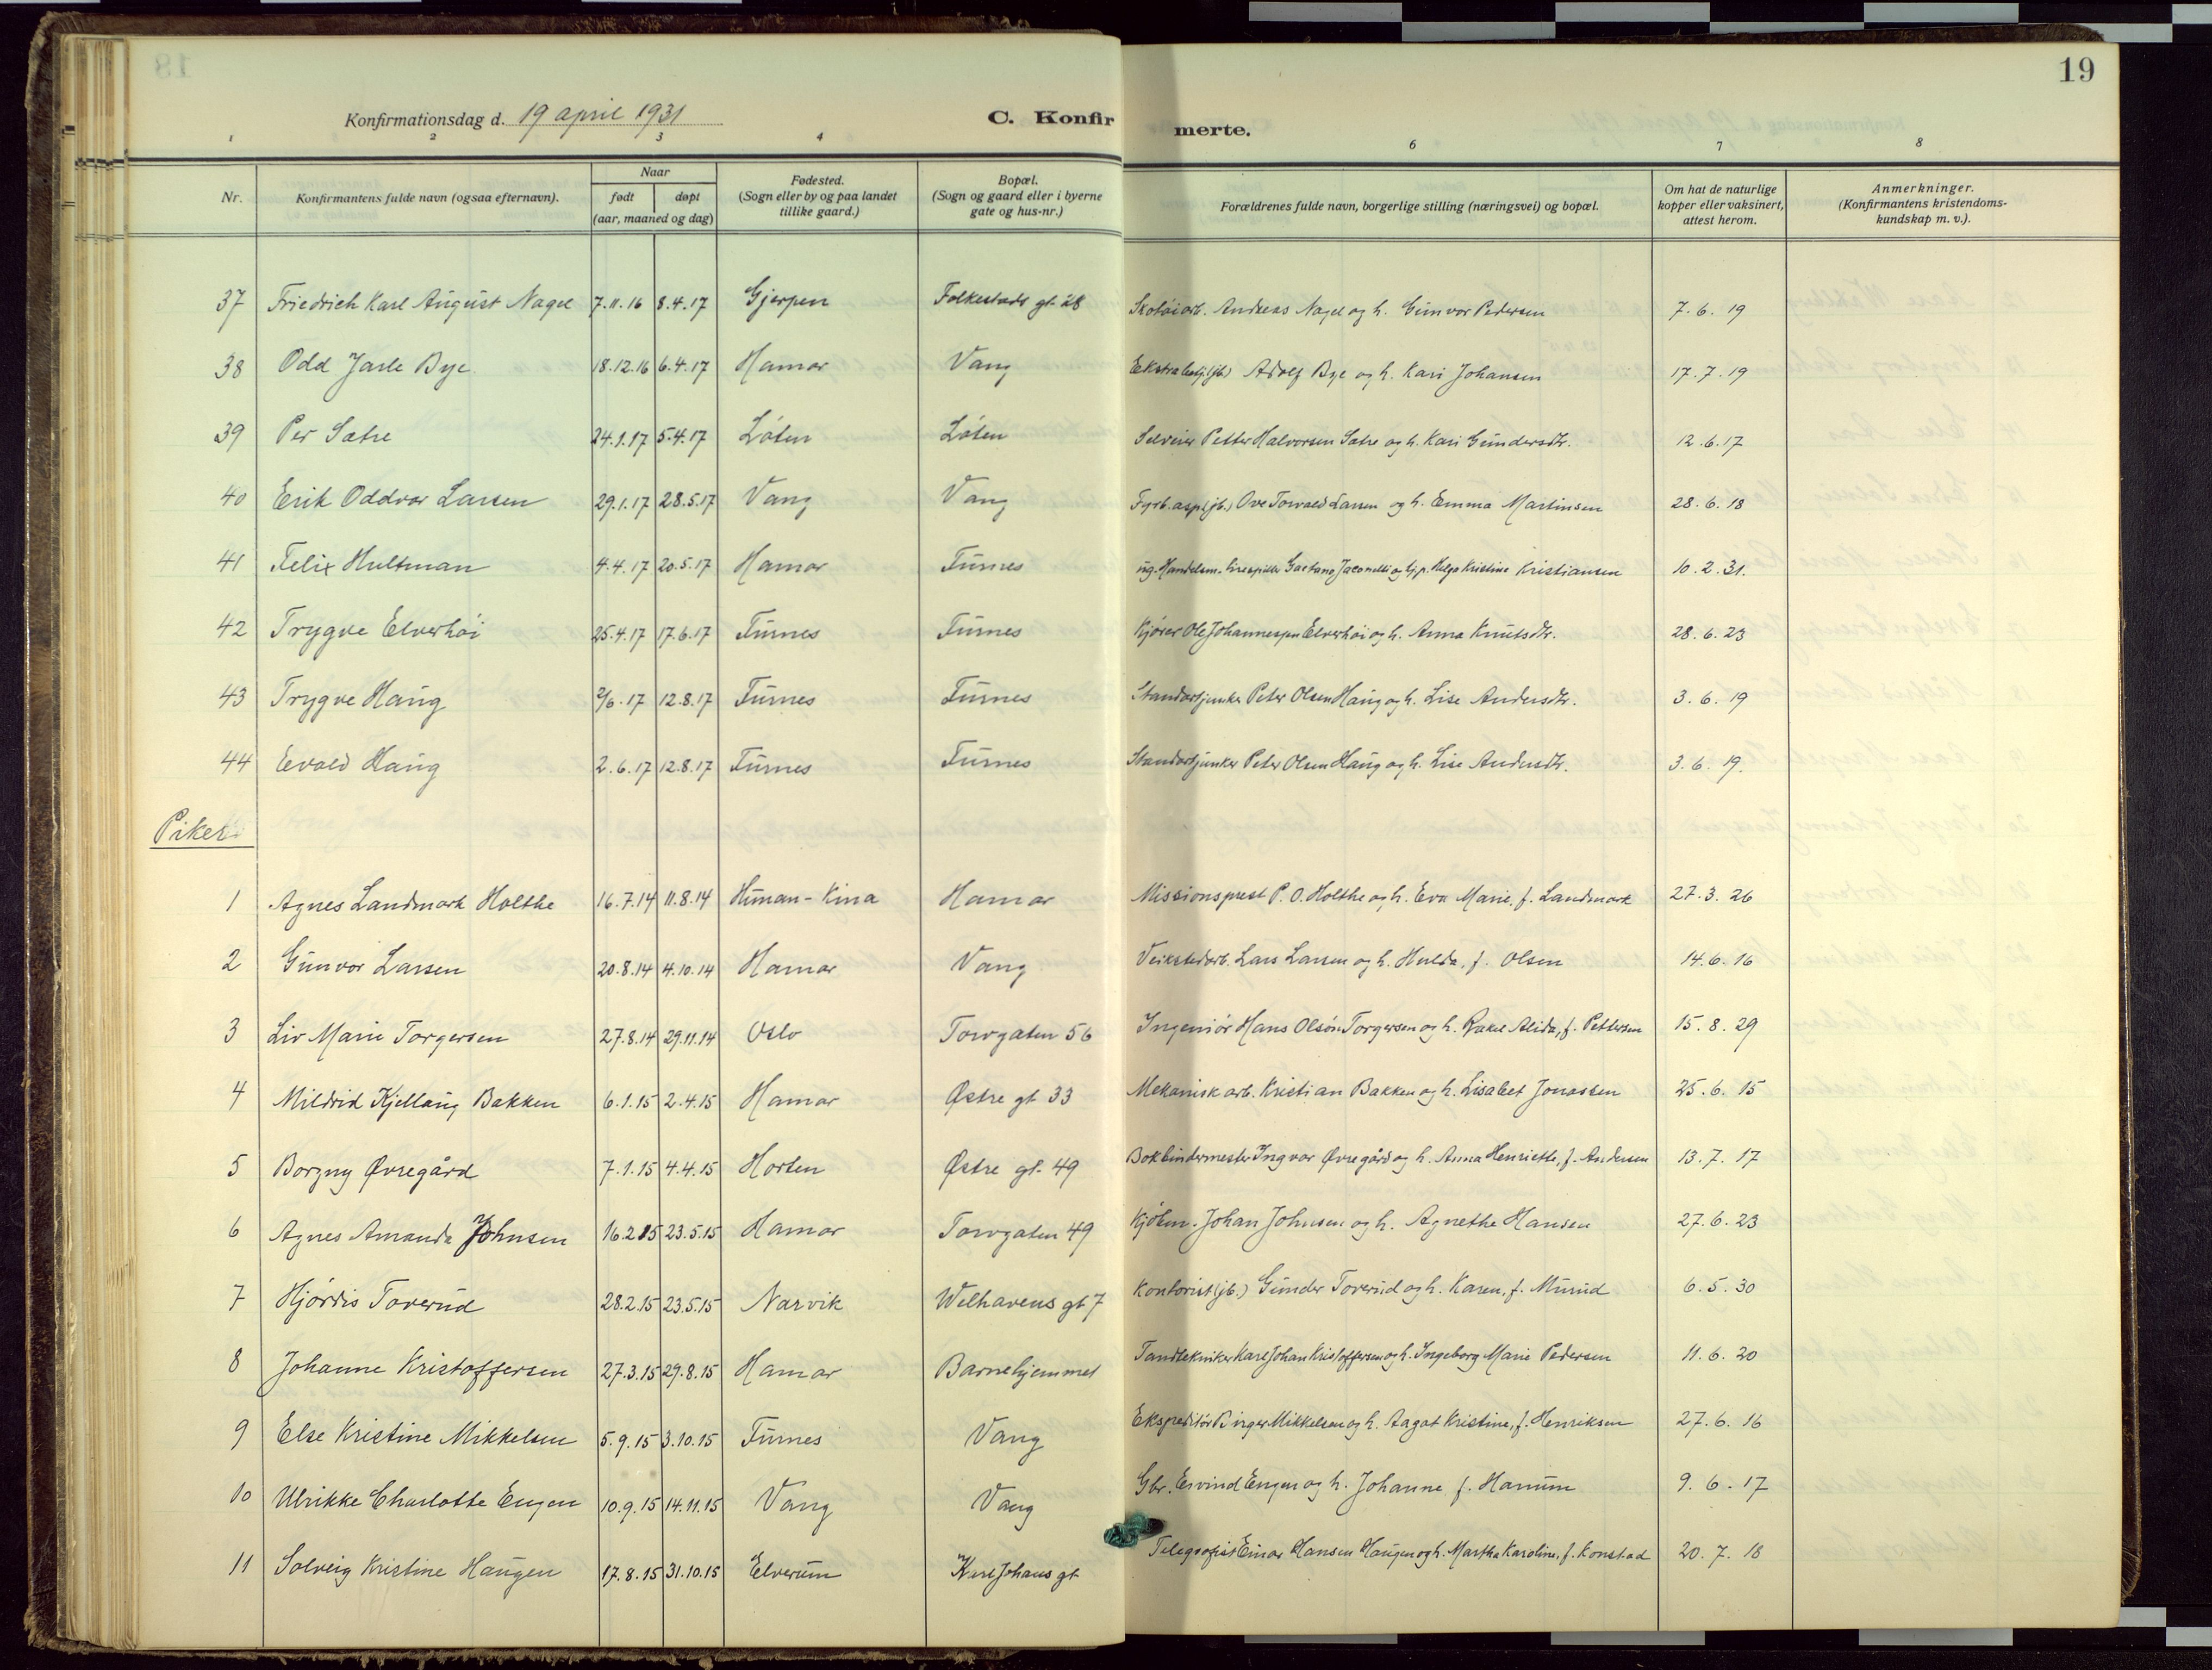 19
Konfirmationsdag d. 19 april 1931
C. Konfir
merte.
1 2 3 4 6 7 8
Nr. Konfirmantens fulde navn (ogsaa efternavn). Naar født døpt (aar, maaned og dag) Fødested. (Sogn eller by og paa landet tillike gaard.) Bopæl. (Sogn og gaard eller i byerne gate og hus-nr.) Forældrenes fulde navn, borgerlige stilling (næringsvei) og bopæl. Om hat de naturlige kopper eller vaksinert, attest herom. Anmerkninger. (Konfirmantens kristendomskundskap m. v.).
37 Friedrich Karl August Nagel 7.11.16 8.4.17 Gjerpen Folkestads gt. 28 Skotøiarb. Andreas Nagel og h. Gunvor Pedersen 7.6.19
38 Odd Jarle Bye 18.12.16 6.4.17 Hamar Vang Ekstrabetj. (jb.) Adolf Bye og h. Kari Johansen 17.7.19
39 Per Sætre 24.1.17 5.4.17 Løten Løten Selveier Petter Halvorsen Sætre og h. Kari Gundersdtr. 12.6.17
40 Erik Oddvar Larsen 29.1.17 28.5.17 Vang Vang Fyrb. asp. (jb.) Ove Torvald Larsen og h. Emma Martinsen 28.6.18
41 Felix Hultman 4.4.17 20.5.17 Hamar Furnes ug. Handelsm. lirespiller Gaetano Jaconelli og pi. Helga Kristine Kristiansen 10.2.31.
42 Trygve Elverhøi 25.4.17 17.6.17 Furnes Furnes Kjører Ole Johannessen Elverhøi og h. Anna Knutsdtr. 28.6.23
43 Trygve Haug 2/6.17 12.8.17 Furnes Furnes Standartjunker Peter Olsen Haug og h. Lise Andersdtr. 3.6.19
44 Evald Haug 2.6.17 12.8.17 Furnes Furnes Standartjunker Peter Olsen Haug og h. Lise Andersdtr. 3.6.19.
Piker
1 Agnes Landmark Holthe 16.7.14 11.8.14 Hunan - Kina Hamar Missionsprest P. O. Holthe og h. Eva Marie, f. Landmark 27.3.26
2 Gunvor Larsen 20.8.14 4.10.14 Hamar Vang Verkstedarb. Lars Larsen og h. Hulda, f. Olsen 14.6.16
3 Liv Marie Torgersen 27.8.14 29.11.14 Oslo Torvgaten 56 Ingeniør Hans Olsøn Torgersen og h. Rakel Alida, f. Pettersen 15.8.29
4 Mildrid Kjellaug Bakken 6.1.15 2.4.15 Hamar Østre gt 33 Mekanisk arb. Kristian Bakken og h. Lisabet Jonassen 25.6.15
5 Borgny Øvregård 7.1.15 4.4.15 Horten Østre gt. 49 Bokbindermester Ingvar Øvregård og h. Anna Henriette, f. Andersen 13.7.17
6 Agnes Amanda Johnsen 16.2.15 23.5.15 Hamar Torvgaten 49 Kjøbm. Johan Johnsen og h. Agnethe Hansen 27.6.23
7 Hjørdis Toverud 28.2.15 23.5.15 Narvik Welhavens gt 7 Kontorist (jb.) Gunder Toverud og h. Karen, f. Murud 6.5.30
8 Johanne Kristoffersen 27.3.15 29.8.15 Hamar Barnehjemmet Tandtekniker Karl Johan Kristoffersen og h. Ingeborg Marie Pedersen 11.6.20
9 Else Kristine Mikkelsen 5.9.15 3.10.15 Furnes Vang Ekspeditør Birger Mikkelsen og h. Aagot Kristine, f. Henriksen 27.6.16
10 Ulrikke Charlotte Engen 10.9.15 14.11.15 Vang Vang Gbr. Eivind Engen og h. Johanne f. Hanum 9.6.17
11 Solveig Kristine Haugen 17.8.15 31.10.15 Elverum Karl Johans gt Telegrafist Einar Hansen Haugen og h. Martha Karoline, f. Konstad 20.7.18